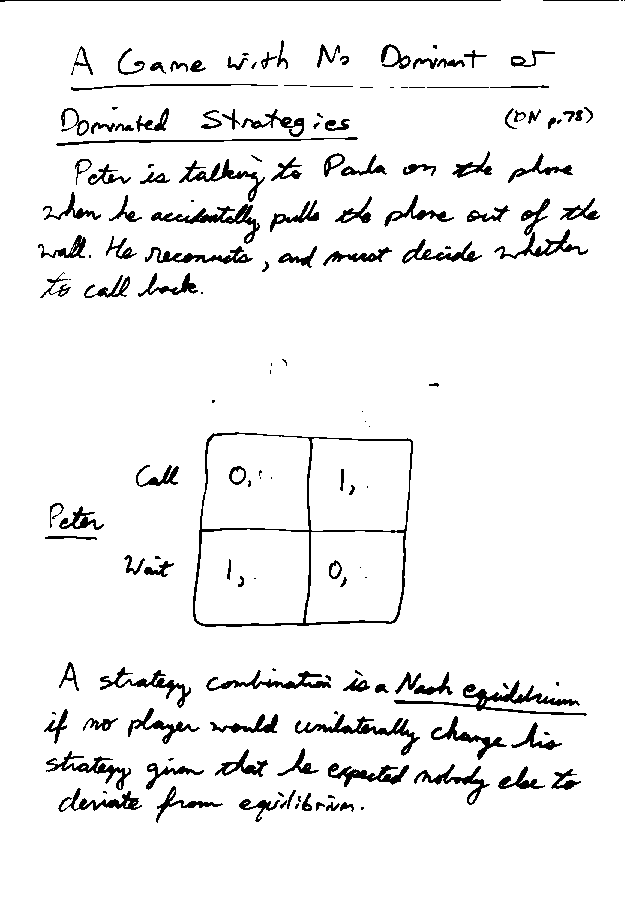 A Game with No Dominant or
Dominated Strategies (DN p.78)
Peter is talking to Paula on the phone
when he accidentally pulls the phone out of the
wall. He reconnects, and must decide whether
to call back.
Call 0, 1,
Peter
Wait 1, 0,
A strategy combination is a Nash equilibrium
if no player would unilaterally change his
strategy given that he expected nobody else to
deviate from equilibrium.